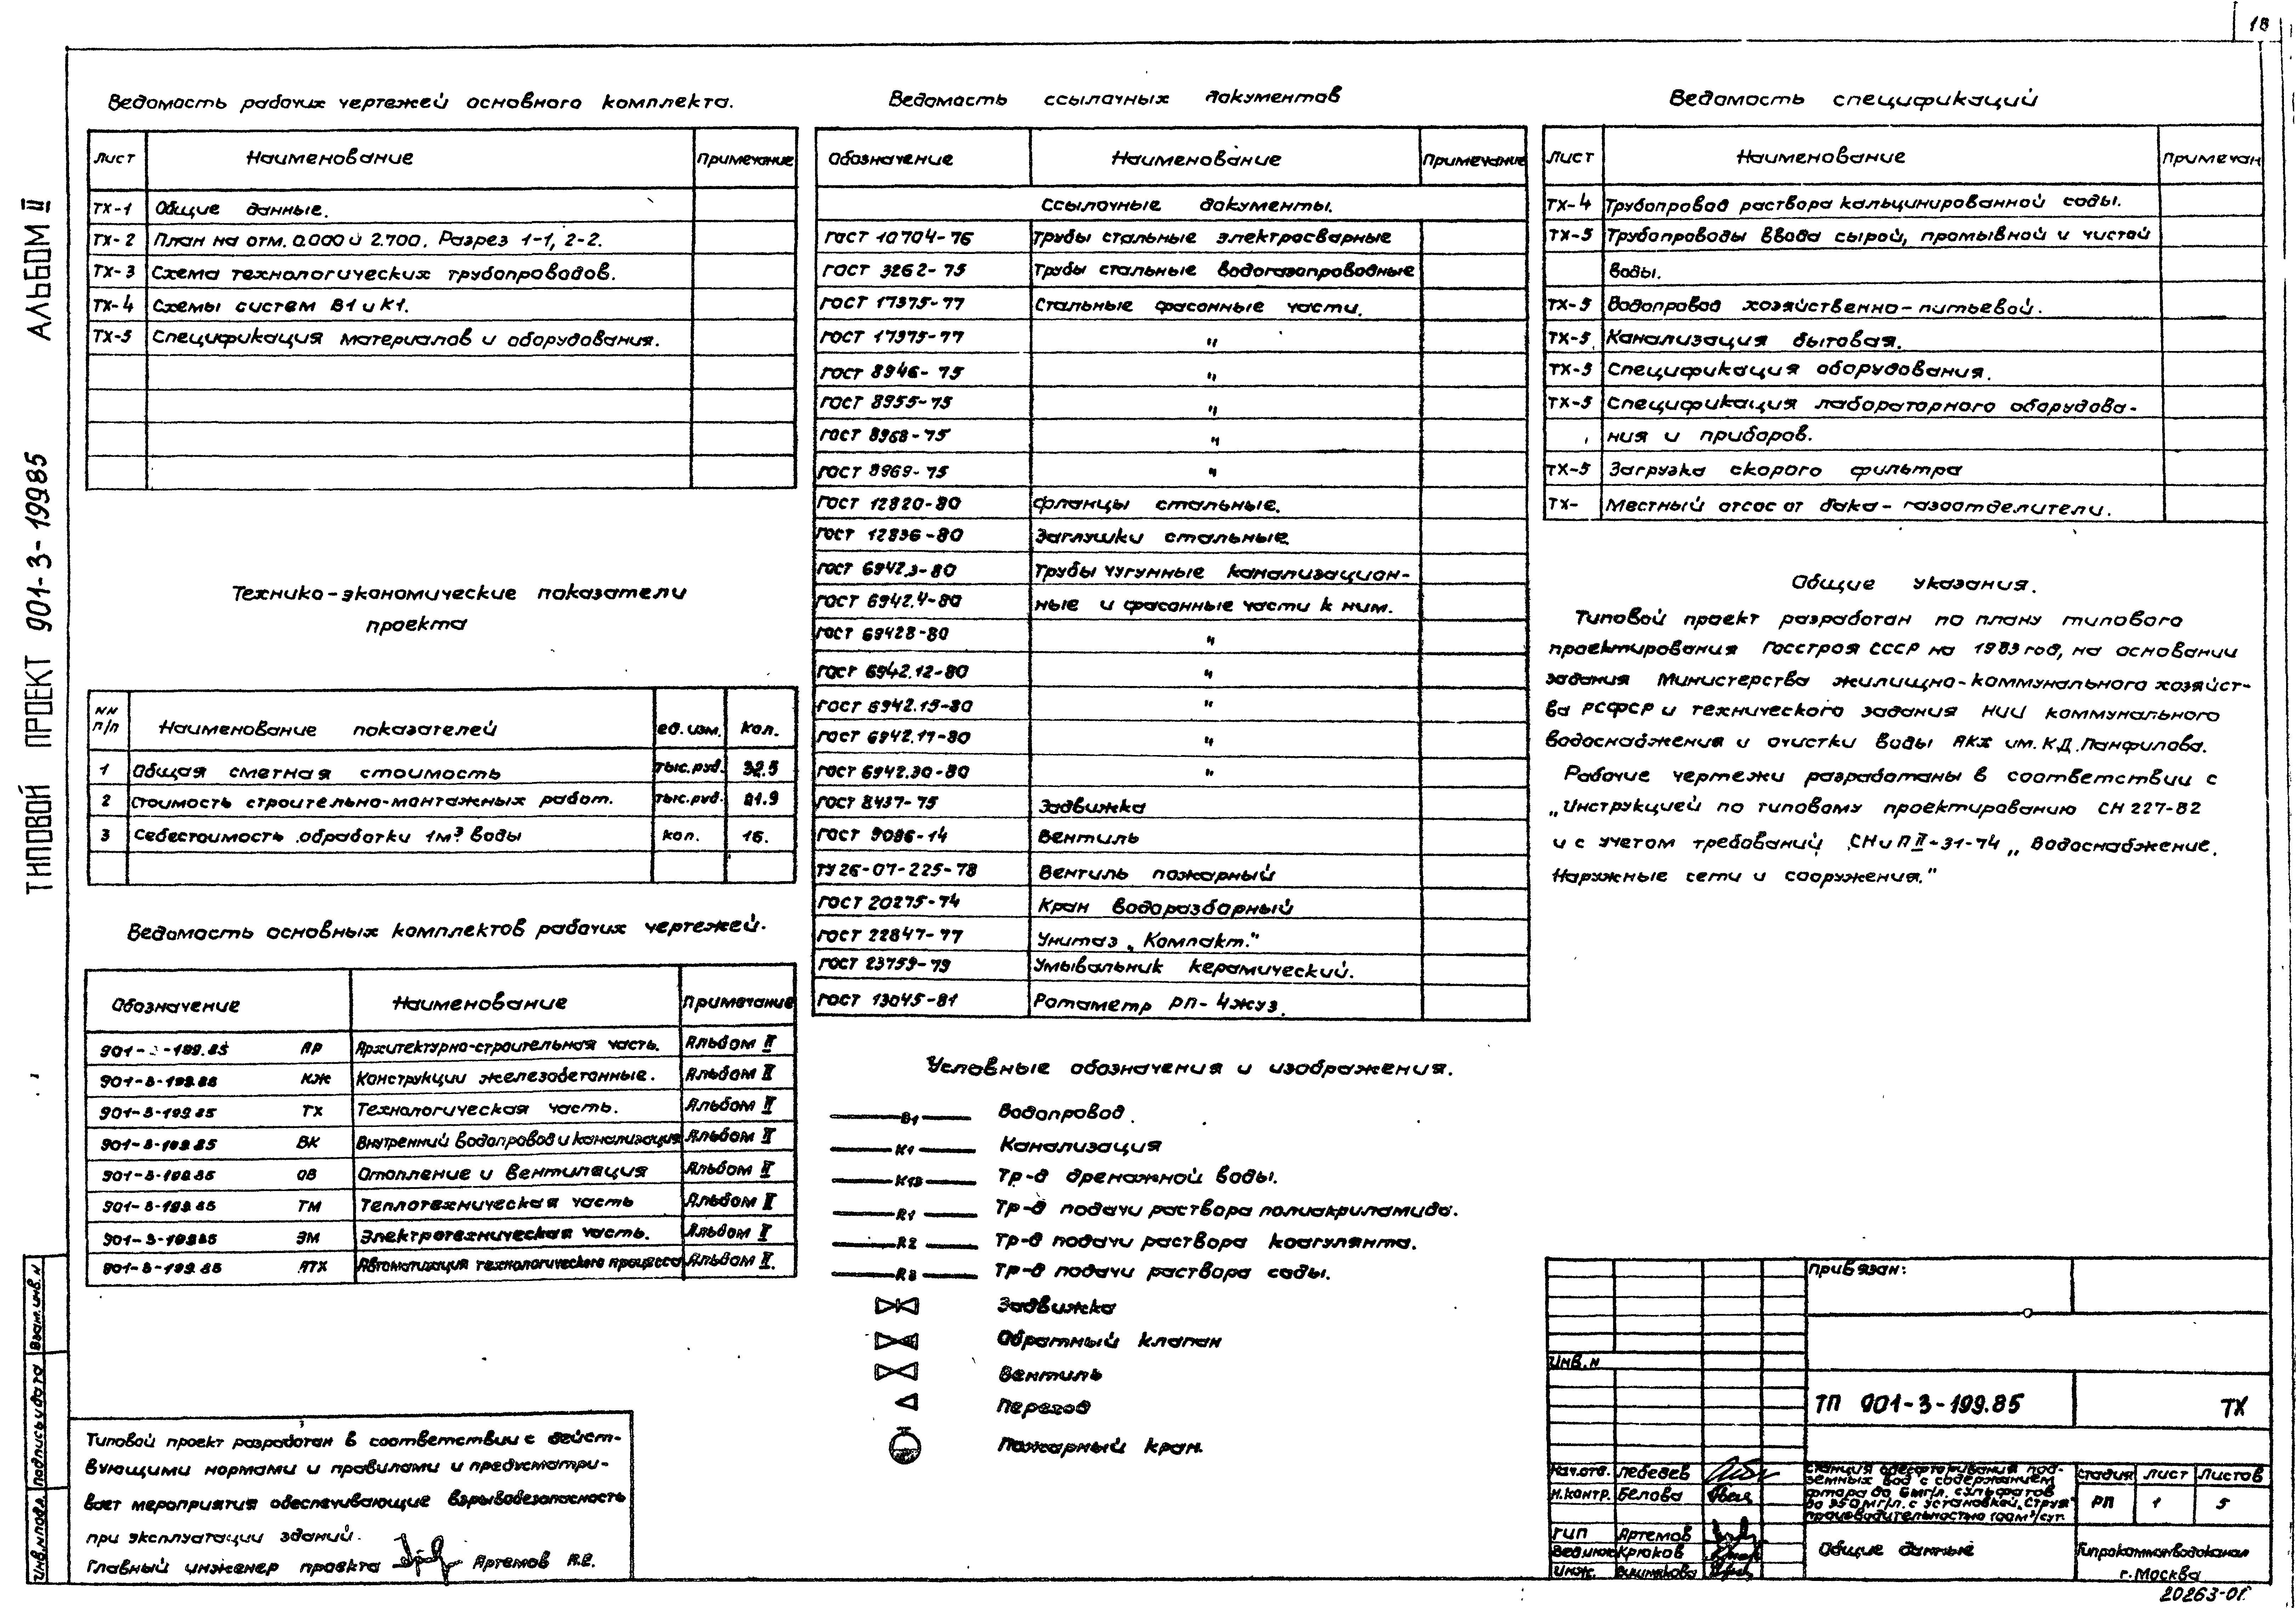 18
АЛЬБОМ II
ТИПОВОЙ ПРОЕКТ 901-3-199.85
Ведомость рабочих чертежей основного комплекта.
Лист Наименование Примечание
ТХ-1 Общие данные.
ТХ-2 План на отм. 0.000 и 2.700. Разрез 1-1, 2-2.
ТХ-3 Схема технологических трубопроводов.
ТХ-4 Схемы систем В1 и К1.
ТХ-5 Спецификация материалов и оборудования.
Технико-экономические показатели
проекта
NN п/п Наименование показателей ед. изм. Кол.
1 Общая сметная стоимость тыс. руб. 32.5
2 Стоимость строительно-монтажных работ. тыс. руб. 21.9
3 Себестоимость обработки 1м³ воды коп. 16.
Ведомость основных комплектов рабочих чертежей.
Обозначение Наименование Примечание
901-3-199.85 АР Архитектурно-строительная часть. Альбом II
901-3-199.85 КЖ Конструкции железобетонные. Альбом II
901-3-199.85 ТХ Технологическая часть. Альбом II
901-3-199.85 ВК Внутренний водопровод и канализация Альбом II
901-3-199.85 ОВ Отопление и вентиляция Альбом II
901-3-199.85 ТМ Теплотехническая часть Альбом II
901-3-199.85 ЭМ Электротехническая часть. Альбом II
901-3-199.85 АТХ Автоматизация технологического процесса Альбом II.
Типовой проект разработан в соответствии с дейст-
вующими нормами и правилами и предусматри-
вает мероприятия обеспечивающие взрывобезопасность
при эксплуатации зданий.
Главный инженер проекта Артемов
Инв. N подл. Подпись и дата Взам. инв. N
Ведомость ссылочных документов
Обозначение Наименование Примечание
Ссылочные документы.
ГОСТ 10704-76 Трубы стальные электросварные
ГОСТ 3262-75 Трубы стальные водогазопроводные
ГОСТ 17375-77 Стальные фасонные части.
ГОСТ 17375-77 "
ГОСТ 8946-75 "
ГОСТ 8955-75 "
ГОСТ 8968-75 "
ГОСТ 8969-75 "
ГОСТ 12820-80 Фланцы стальные.
ГОСТ 12836-80 Заглушки стальные.
ГОСТ 6942.3-80 Трубы чугунные канализацион-
ГОСТ 6942.4-80 ные и фасонные части к ним.
ГОСТ 69428-80 "
ГОСТ 6942.12-80 "
ГОСТ 6942.15-80 "
ГОСТ 6942.17-80 "
ГОСТ 6942.30-80 "
ГОСТ 8437-75 Задвижка
ГОСТ 9086-14 Вентиль
ТУ 26-07-225-78 Вентиль пожарный
ГОСТ 20275-74 Кран водоразборный
ГОСТ 22847-77 Унитаз „Компакт."
ГОСТ 23759-79 Умывальник керамический.
ГОСТ 13045-81 Ротаметр РП-4жуз.
Условные обозначения и изображения.
В1 Водопровод.
К1 Канализация
К13 Тр-д дренажной воды.
R1 Тр-д подачи раствора полиакриламида.
R2 Тр-д подачи раствора коагулянта.
R3 Тр-д подачи раствора соды.
Задвижка
Обратный клапан
Вентиль
Переход
Пожарный кран.
Ведомость спецификаций
Лист Наименование Примечан
ТХ-4 Трубопровод раствора кальцинированной соды.
ТХ-5 Трубопроводы ввода сырой, промывной и чистой
воды.
ТХ-5 Водопровод хозяйственно-питьевой.
ТХ-5 Канализация бытовая.
ТХ-5 Спецификация оборудования.
ТХ-5 Спецификация лабораторного оборудова-
ния и приборов.
ТХ-5 Загрузка скорого фильтра
ТХ- Местный отсос от бака-газоотделители.
Общие указания.
Типовой проект разработан по плану типового
проектирования Госстроя СССР на 1983 год, на основании
задания Министерства жилищно-коммунального хозяйст-
ва РСФСР и технического задания НИИ коммунального
водоснабжения и очистки воды АКХ им. К.Д. Панфилова.
Рабочие чертежи разработаны в соответствии с
„Инструкцией по типовому проектированию СН 227-82
и с учетом требований СНиП II-31-74 „Водоснабжение.
Наружные сети и сооружения."
Привязан:
Инв. N
ТП 901-3-199.85 ТХ
Нач. отд. Лебедев
Н. контр. Белова
ГИП Артемов
Вед. инж. Крюков
Инж. Вишнякова
Станция обесфторивания под-
земных вод с содержанием
фтора до 6мг/л. сульфатов
до 350мг/л. с установкой „Струя"
производительностью 100м³/сут.
Стадия Лист Листов
РП 1 5
Общие данные
Гипрокоммунводоканал
г. Москва
20263-01